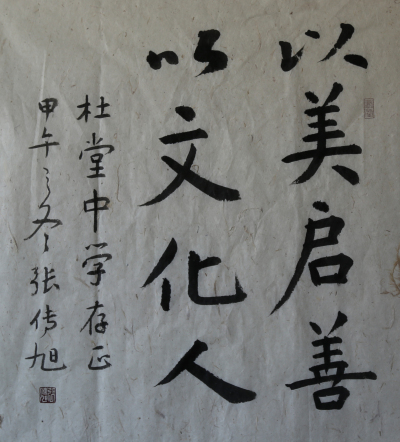 以美启善
以文化人
杜堂中学存正
甲午之冬张传旭